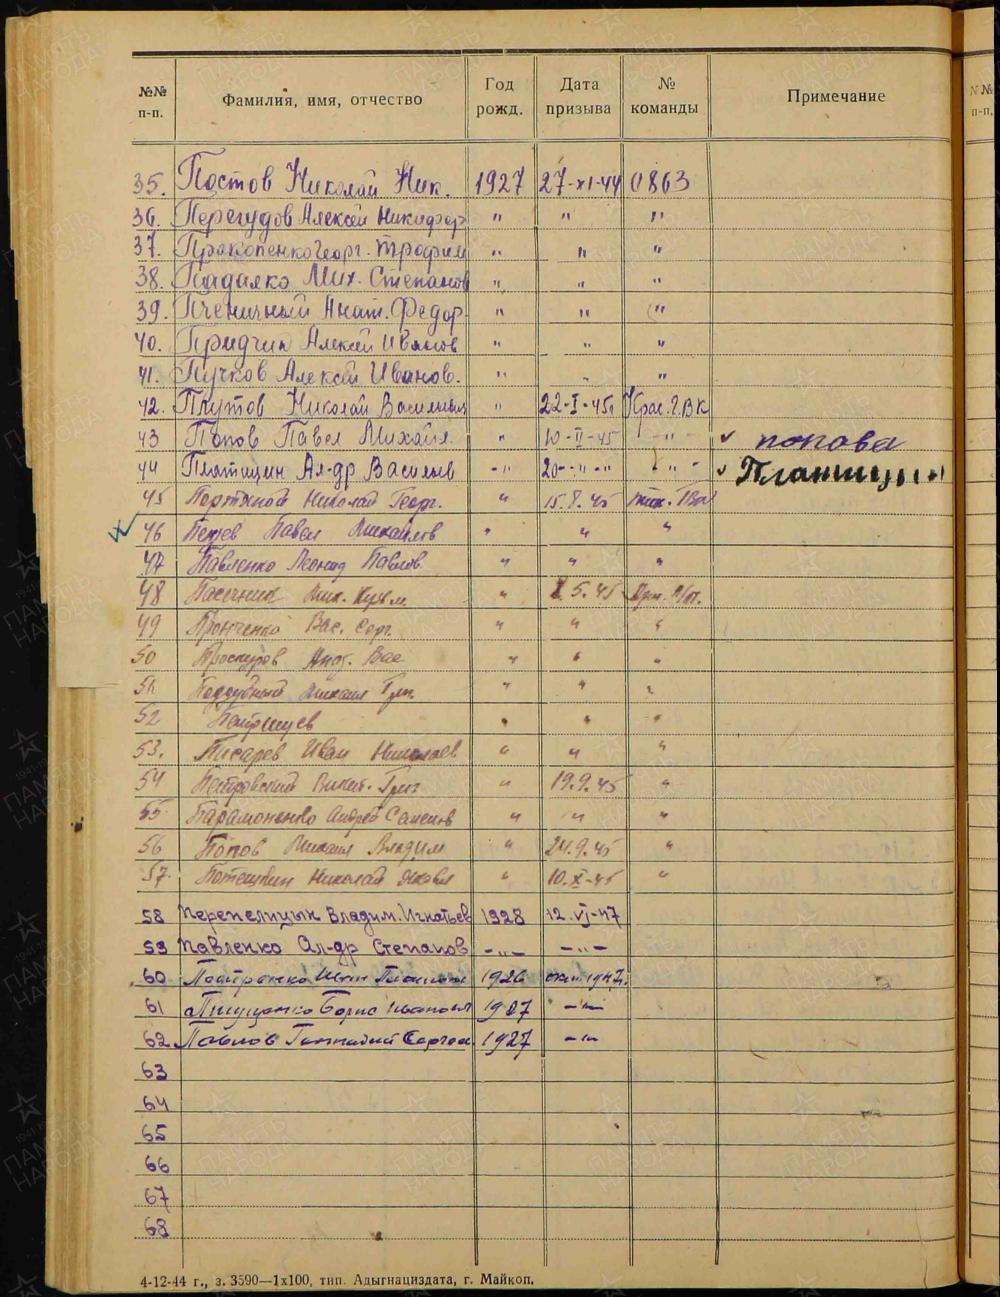 №№ п-п. Фамилия, имя, отчество Год рожд. Дата призыва № команды Примечание
35. Постов Николай Ник. 1927 27-XI-44 0863
36. Перегудов Алексей Никифор " " "
37. Прокопенко Георг. Трофим " " "
38. Падалко Мих. Степанов " " "
39. Пченичный Анат. Федор. " " "
40. Придчин Алексей Иванов " " "
41. Пучков Алексей Иванов. " " "
42. Плутов Николай Васильев " 22-I-45г Крас. Г.В.К
43 Попов Павел Михайл. " 10-II-45 -"- ✓ попова
44 Плятицин Ал-др Васильв -"- 20-"-"- -"- ✓
45 Портяной Николай Георг. " 15.8.45
46 Павел Михайлов " " "
47 Павленко Леонид Павлов. " " "
48 Пасечник Мих. Кузьм. " 5.45
49 Пронченко Вас. Серг. " " "
50 Проскуров Анд. Вас " " "
51 Поддубный Михаил Григ. " " "
52 " " "
53. Писарев Иван Николаев " " "
54 Петровский Григ " 19.9.45 "
55 Парамоненко Андрей Семенов " " "
56 Попов Михаил Владим " 24.9.45 "
57. Потешкин Николай Яковл " 10.X-45 "
58 Перепелицын Владим. Игнатьев 1928 12.VI-47
59 Павленко Ал-др Степанов -"- -"-
60 1926 1947г.
61 Борис Иванович 1927 -"-
62 Павлов Геннадий Сергеев 1927 -"-
63
64
65
66
67
68
4-12-44 г., з. 3590—1х100, тип. Адыгнациздата, г. Майкоп.